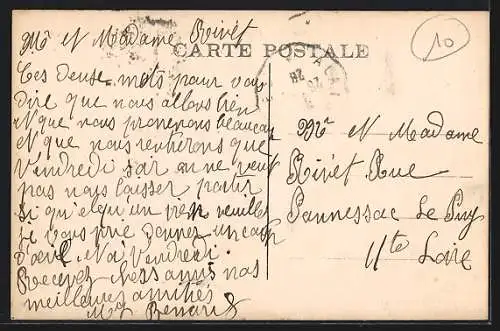 Mr et Madame Rivet
CARTE POSTALE
10
Ces deuse mots pour vous
dire que nous allons bien
et que nous promenons beaucoup
et que nous rentrerons que
Vendredi car on ne veut
pas nous laisser partir
si quelqu'un vien veuillez
je vous prie donner un coup
d'oeil. A Vendredi.
Recevez chers amis nos
meilleures amitiés
Mr et Madame
Rivet Rue
Pannessac Le Puy
Hte Loire